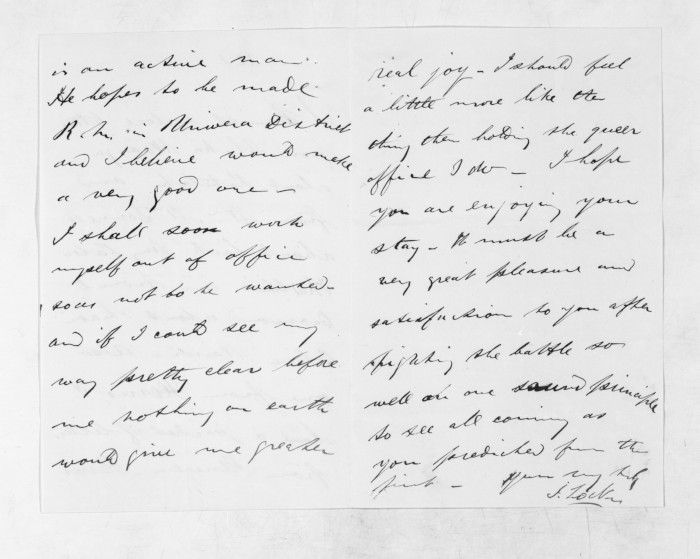 is an active man.
He hopes to be made
R. M. in District
and I believe would make
a very good one —
I shall soon work
myself out of office
soas not to be wanted —
and if I could see my
way pretty clear before
me nothing on earth
would give me greater
real joy — I should feel
a little more like the
thing then holding the queer
office I do — I hope
you are enjoying your
stay — It must be a
very great pleasure and
satisfaction to you after
fighting the battle so
well on one sound principle
to see all coming as
you predicted from the
first — Yours